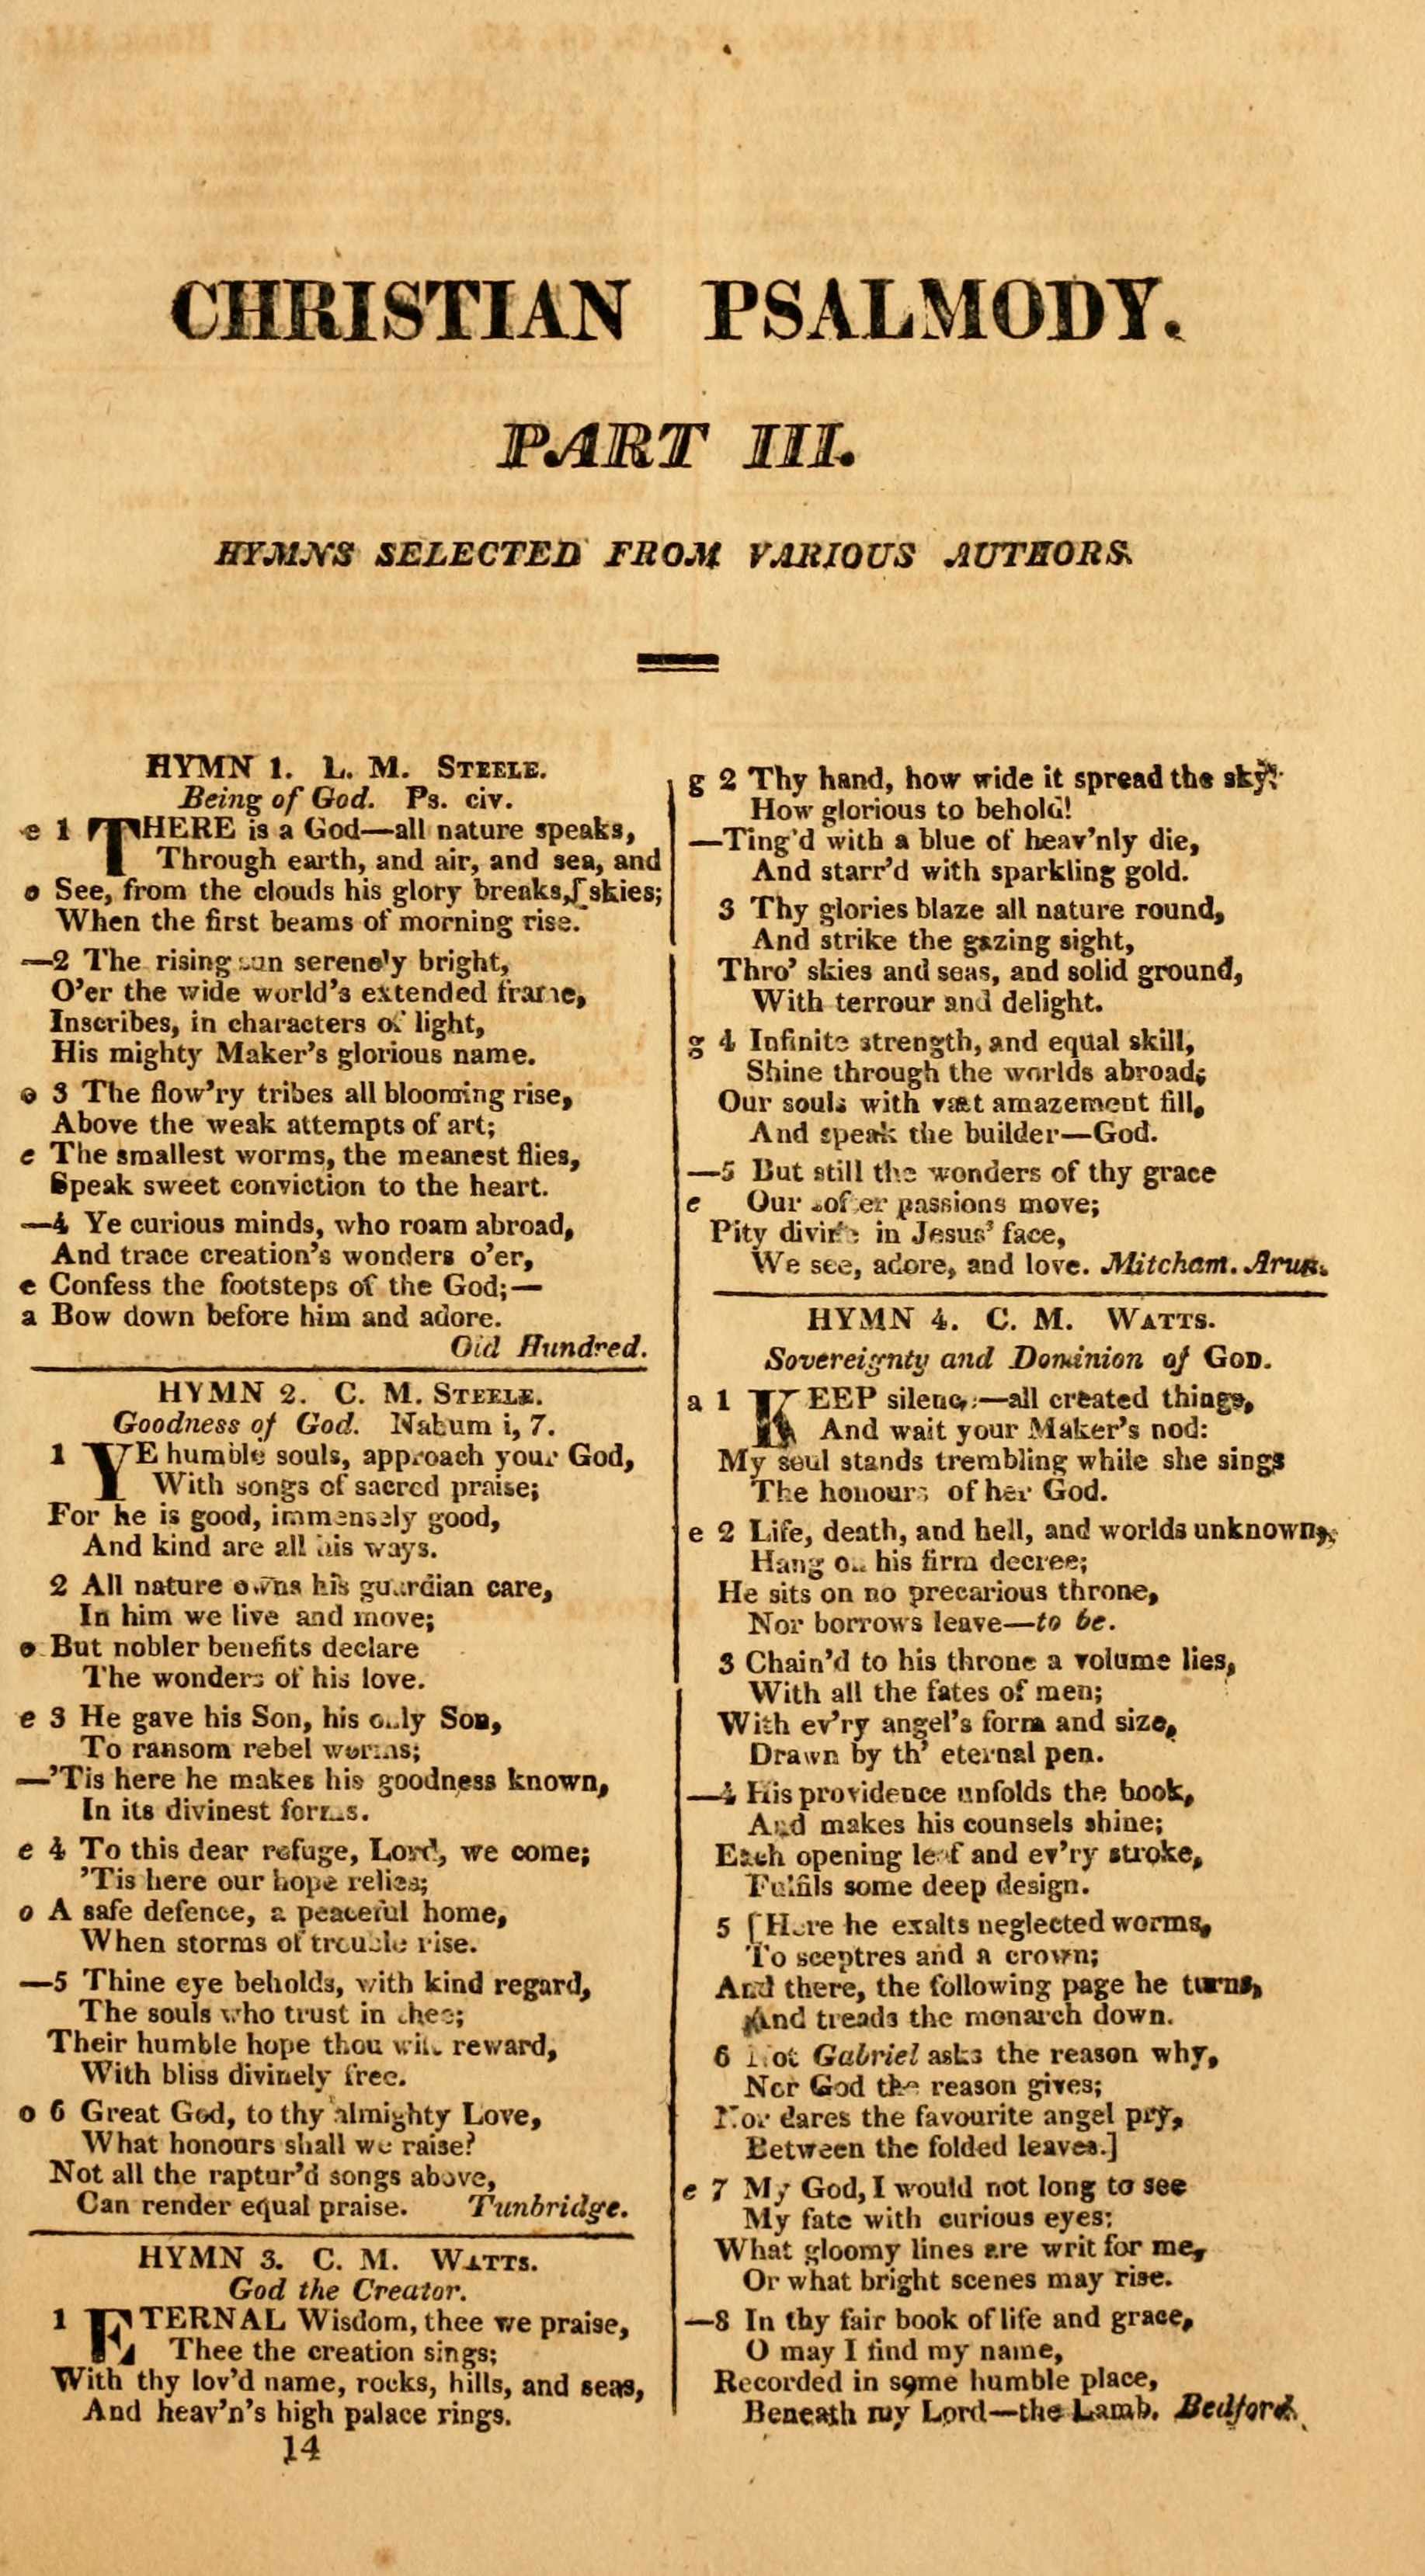 CHRISTIAN PSALMODY.
PART III.
HYMNS SELECTED FROM VARIOUS AUTHORS.
HYMN 1. L. M. STEELE.
Being of God. Ps. civ.
e 1 THERE is a God—all nature speaks,
Through earth, and air, and sea, and
o See, from the clouds his glory breaks, [skies;
When the first beams of morning rise.
—2 The rising sun serenely bright,
O'er the wide world's extended frame,
Inscribes, in characters of light,
His mighty Maker's glorious name.
o 3 The flow'ry tribes all blooming rise,
Above the weak attempts of art;
e The smallest worms, the meanest flies,
Speak sweet conviction to the heart.
—4 Ye curious minds, who roam abroad,
And trace creation's wonders o'er,
e Confess the footsteps of the God;—
a Bow down before him and adore.
Old Hundred.
HYMN 2. C. M. STEELE.
Goodness of God. Nahum i, 7.
1 YE humble souls, approach your God,
With songs of sacred praise;
For he is good, immensely good,
And kind are all his ways.
2 All nature owns his guardian care,
In him we live and move;
o But nobler benefits declare
The wonders of his love.
e 3 He gave his Son, his only Son,
To ransom rebel worms;
—'Tis here he makes his goodness known,
In its divinest forms.
e 4 To this dear refuge, Lord, we come;
'Tis here our hope relies;
o A safe defence, a peaceful home,
When storms of trouble rise.
—5 Thine eye beholds, with kind regard,
The souls who trust in thee;
Their humble hope thou wilt reward,
With bliss divinely free.
o 6 Great God, to thy almighty Love,
What honours shall we raise?
Not all the raptur'd songs above,
Can render equal praise. Tunbridge.
HYMN 3. C. M. WATTS.
God the Creator.
1 ETERNAL Wisdom, thee we praise,
Thee the creation sings;
With thy lov'd name, rocks, hills, and seas,
And heav'n's high palace rings.
14
g 2 Thy hand, how wide it spread the sky!
How glorious to behold!
—Ting'd with a blue of heav'nly die,
And starr'd with sparkling gold.
3 Thy glories blaze all nature round,
And strike the gazing sight,
Thro' skies and seas, and solid ground,
With terrour and delight.
g 4 Infinite strength, and equal skill,
Shine through the worlds abroad;
Our souls with vast amazement fill,
And speak the builder—God.
—5 But still the wonders of thy grace
e Our softer passions move;
Pity divine in Jesus' face,
We see, adore, and love. Mitcham. Arun.
HYMN 4. C. M. WATTS.
Sovereignty and Dominion of GOD.
a 1 KEEP silence—all created things,
And wait your Maker's nod:
My soul stands trembling while she sings
The honours of her God.
e 2 Life, death, and hell, and worlds unknown,
Hang on his firm decree;
He sits on no precarious throne,
Nor borrows leave—to be.
3 Chain'd to his throne a volume lies,
With all the fates of men;
With ev'ry angel's form and size,
Drawn by th' eternal pen.
—4 His providence unfolds the book,
And makes his counsels shine;
Each opening leaf and ev'ry stroke,
Fulfils some deep design.
5 [Here he exalts neglected worms,
To sceptres and a crown;
And there, the following page he turns,
And treads the monarch down.
6 Not Gabriel asks the reason why,
Nor God the reason gives;
Nor dares the favourite angel pry,
Between the folded leaves.]
e 7 My God, I would not long to see
My fate with curious eyes;
What gloomy lines are writ for me,
Or what bright scenes may rise.
—8 In thy fair book of life and grace,
O may I find my name,
Recorded in some humble place,
Beneath my Lord—the Lamb. Bedford.